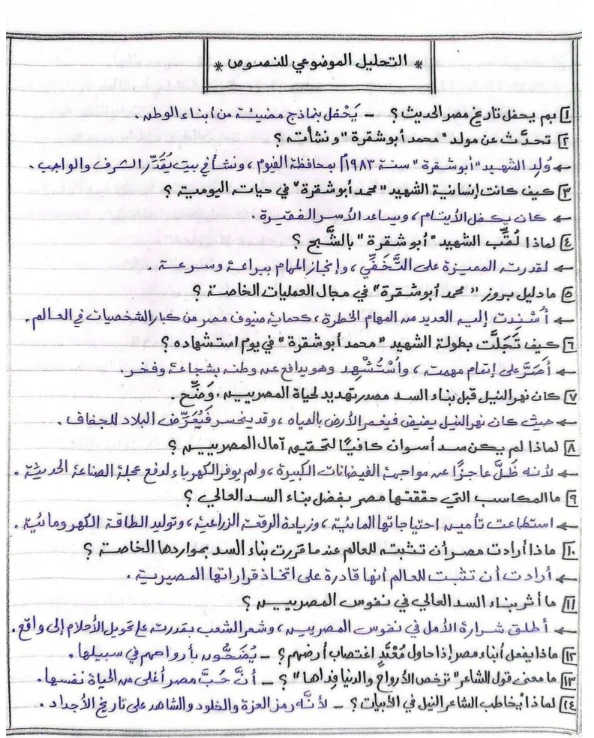 * التحليل الموضوعي للنصوص *
١ بم يحفل تاريخ مصر الحديث ؟ – يَحْفل بنماذج مضيئة من أبناء الوطن .
٢ تحدَّث عن مولد "محمد أبو شقرة" ونشأته ؟
← وُلِد الشهيد "أبو شقرة" سنة ١٩٨٣م بمحافظة الفيوم ، ونشأ في بيت يُقَدِّر الشرف والواجب .
٣ كيف كانت إنسانية الشهيد "محمد أبو شقرة" في حياته اليومية ؟
← كان يكفل الأيتام ، ويساعد الأسر الفقيرة .
٤ لماذا لُقِّب الشهيد "أبو شقرة" بالشَّبح ؟
← لقدرته المميزة على التَّخَفِّي ، وإنجاز المهام ببراعة وسرعة .
٥ ما دليل بروز "محمد أبو شقرة" في مجال العمليات الخاصة ؟
← أُسْنِدت إليه العديد من المهام الخطرة ، كحماية ضيوف مصر من كبار الشخصيات في العالم .
٦ كيف تَجَلَّت بطولة الشهيد "محمد أبو شقرة" في يوم استشهاده ؟
← أصَرَّ على إتمام مهمته ، واُسْتُشْهِد وهو يدافع عن وطنه بشجاعة وفخر .
٧ كان نهر النيل قبل بناء السد مصدر تهديد لحياة المصريين . وَضِّح .
← حيث كان نهر النيل يفيض فيغمر الأرض بالمياه ، وقد ينحسر فيُعَرِّض البلاد للجفاف .
٨ لماذا لم يكن سد أسوان كافيًا لتحقيق آمال المصريين ؟
← لأنه ظَلَّ عاجزًا عن مواجهة الفيضانات الكبيرة ، ولم يوفر الكهرباء لدفع عجلة الصناعة الحديثة .
٩ ما المكاسب التي حققتها مصر بفضل بناء السد العالي ؟
← استطاعت تأمين احتياجاتها المائية ، وزيادة الرقعة الزراعية ، وتوليد الطاقة الكهرومائية .
١٠ ماذا أرادت مصر أن تثبته للعالم عندما قررت بناء السد بمواردها الخاصة ؟
← أرادت أن تثبت للعالم أنها قادرة على اتخاذ قراراتها المصيرية .
١١ ما أثر بناء السد العالي في نفوس المصريين ؟
← أطلق شرارة الأمل في نفوس المصريين ، وشعر الشعب بقدرته على تحويل الأحلام إلى واقع .
١٢ ماذا يفعل أبناء مصر إذا حاول مُعْتَدٍ اغتصاب أرضهم ؟ – يُضَحُّون بأرواحهم في سبيلها .
١٣ ما معنى قول الشاعر "ترخص الأرواح والدنيا فداها" ؟ – أنَّ حُبَّ مصر أغلى من الحياة نفسها .
١٤ لماذا يُخاطب الشاعر النيل في الأبيات ؟ – لأنَّه رمز العزة والخلود والشاهد على تاريخ الأجداد .